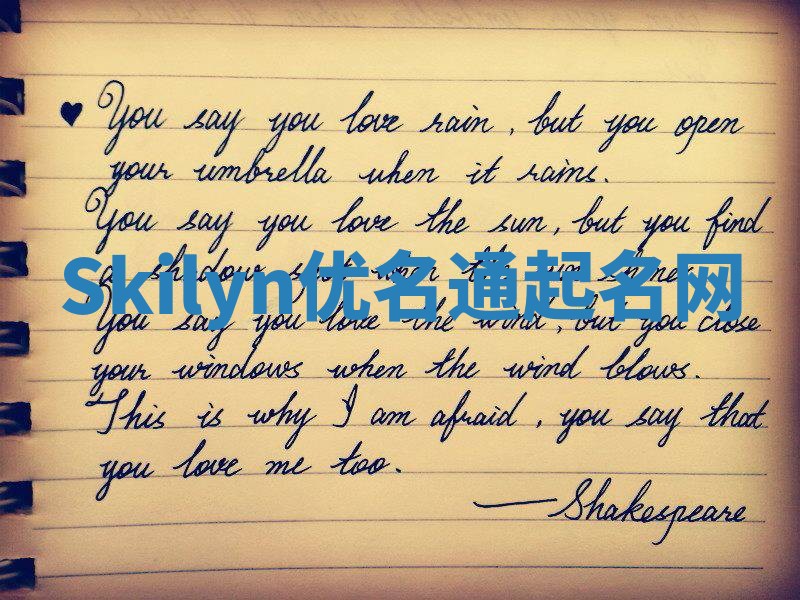 ♥ You say you love rain, but you open
your umbrella when it rains.
You say you love the sun, but you find
a shadow spot when the sun shines.
Skilyn优名通起名网
You say you love the wind, but you close
your windows when the wind blows.
This is why I am afraid, you say that
you love me too.
— Shakespeare